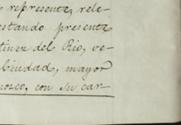 represente, rele-
estando presente
tinez del Rio, ve-
Ciudad, mayor
nozco, con su car-